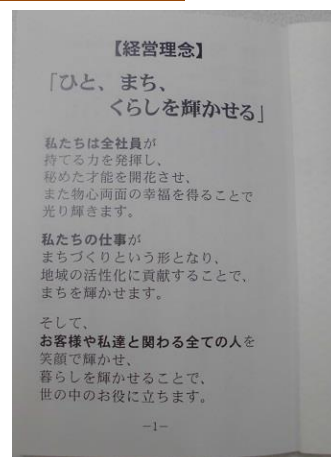 【経営理念】
「ひと、まち、
くらしを輝かせる」
私たちは全社員が
持てる力を発揮し、
秘めた才能を開花させ、
また物心両面の幸福を得ることで
光り輝きます。
私たちの仕事が
まちづくりという形となり、
地域の活性化に貢献することで、
まちを輝かせます。
そして、
お客様や私達と関わる全ての人を
笑顔で輝かせ、
暮らしを輝かせることで、
世の中のお役に立ちます。
−1−